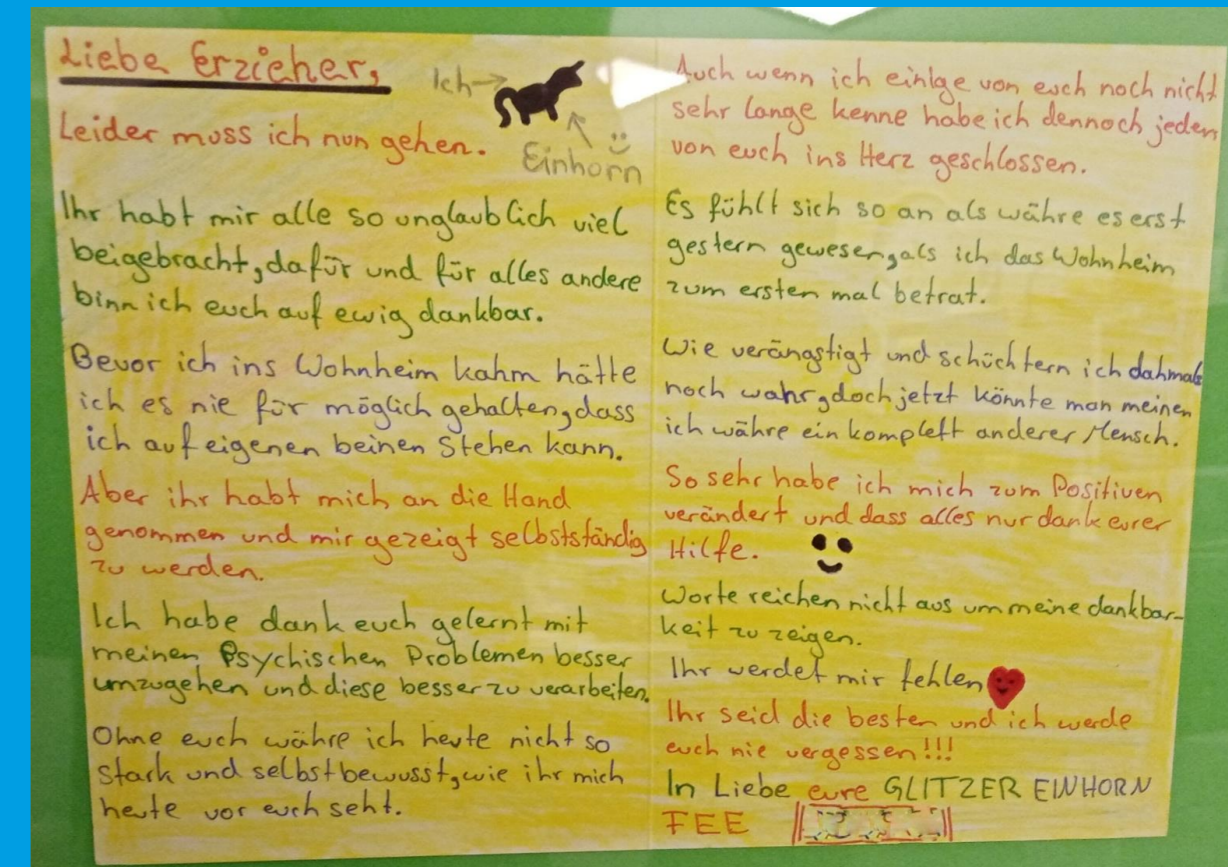 Liebe Erzieher,
Ich
Leider muss ich nun gehen.
Einhorn
Ihr habt mir alle so unglaublich viel
beigebracht, dafür und für alles andere
binn ich euch auf ewig dankbar.
Bevor ich ins Wohnheim kahm hätte
ich es nie für möglich gehalten, dass
ich auf eigenen beinen Stehen kann.
Aber ihr habt mich an die Hand
genommen und mir gezeigt selbstständig
zu werden.
Ich habe dank euch gelernt mit
meinen Psychischen Problemen besser
umzugehen und diese besser zu verarbeiten.
Ohne euch währe ich heute nicht so
stark und selbstbewusst, wie ihr mich
heute vor euch seht.
Auch wenn ich einige von euch noch nicht
sehr lange kenne habe ich dennoch jeden
von euch ins Herz geschlossen.
Es fühlt sich so an als währe es erst
gestern gewesen, als ich das Wohnheim
zum ersten mal betrat.
Wie verängstigt und schüchtern ich dahmals
noch wahr, doch jetzt könnte man meinen
ich währe ein komplett anderer Mensch.
So sehr habe ich mich zum Positiven
verändert und dass alles nur dank eurer
Hilfe.
Worte reichen nicht aus um meine dankbar-
keit zu zeigen.
Ihr werdet mir fehlen
Ihr seid die besten und ich werde
euch nie vergessen!!!
In Liebe eure GLITZER EINHORN
FEE